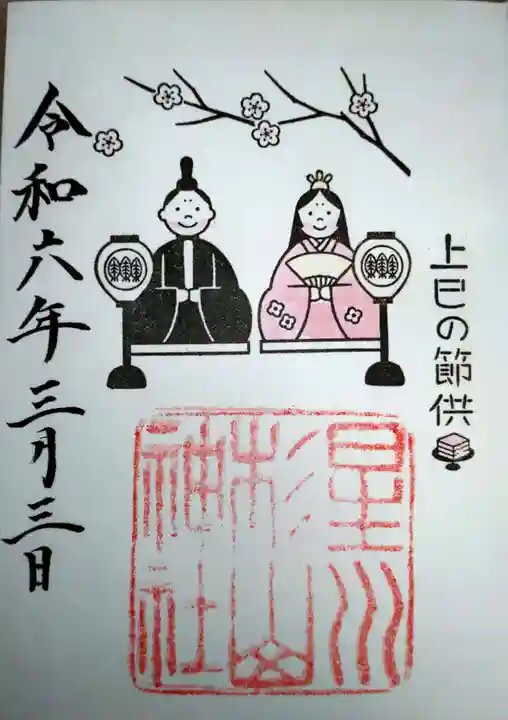 上巳の節供
令和六年三月三日
星川杉山神社